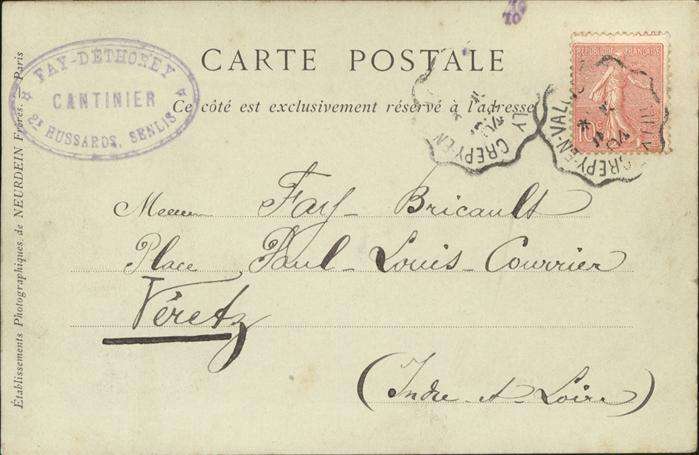 CARTE POSTALE
Ce côté est exclusivement réservé à l'adresse
FAY-DÉTHOREY
CANTINIER
2e HUSSARDS, SENLIS
RÉPUBLIQUE FRANÇAISE
10
CREPY-EN-VALLOIS
04
LY CREPY-EN
Fay-Bricault
Place Paul-Louis-Courrier
Véretz
(Indre-et-Loire)
Établissements Photographiques de NEURDEIN Frères. — Paris